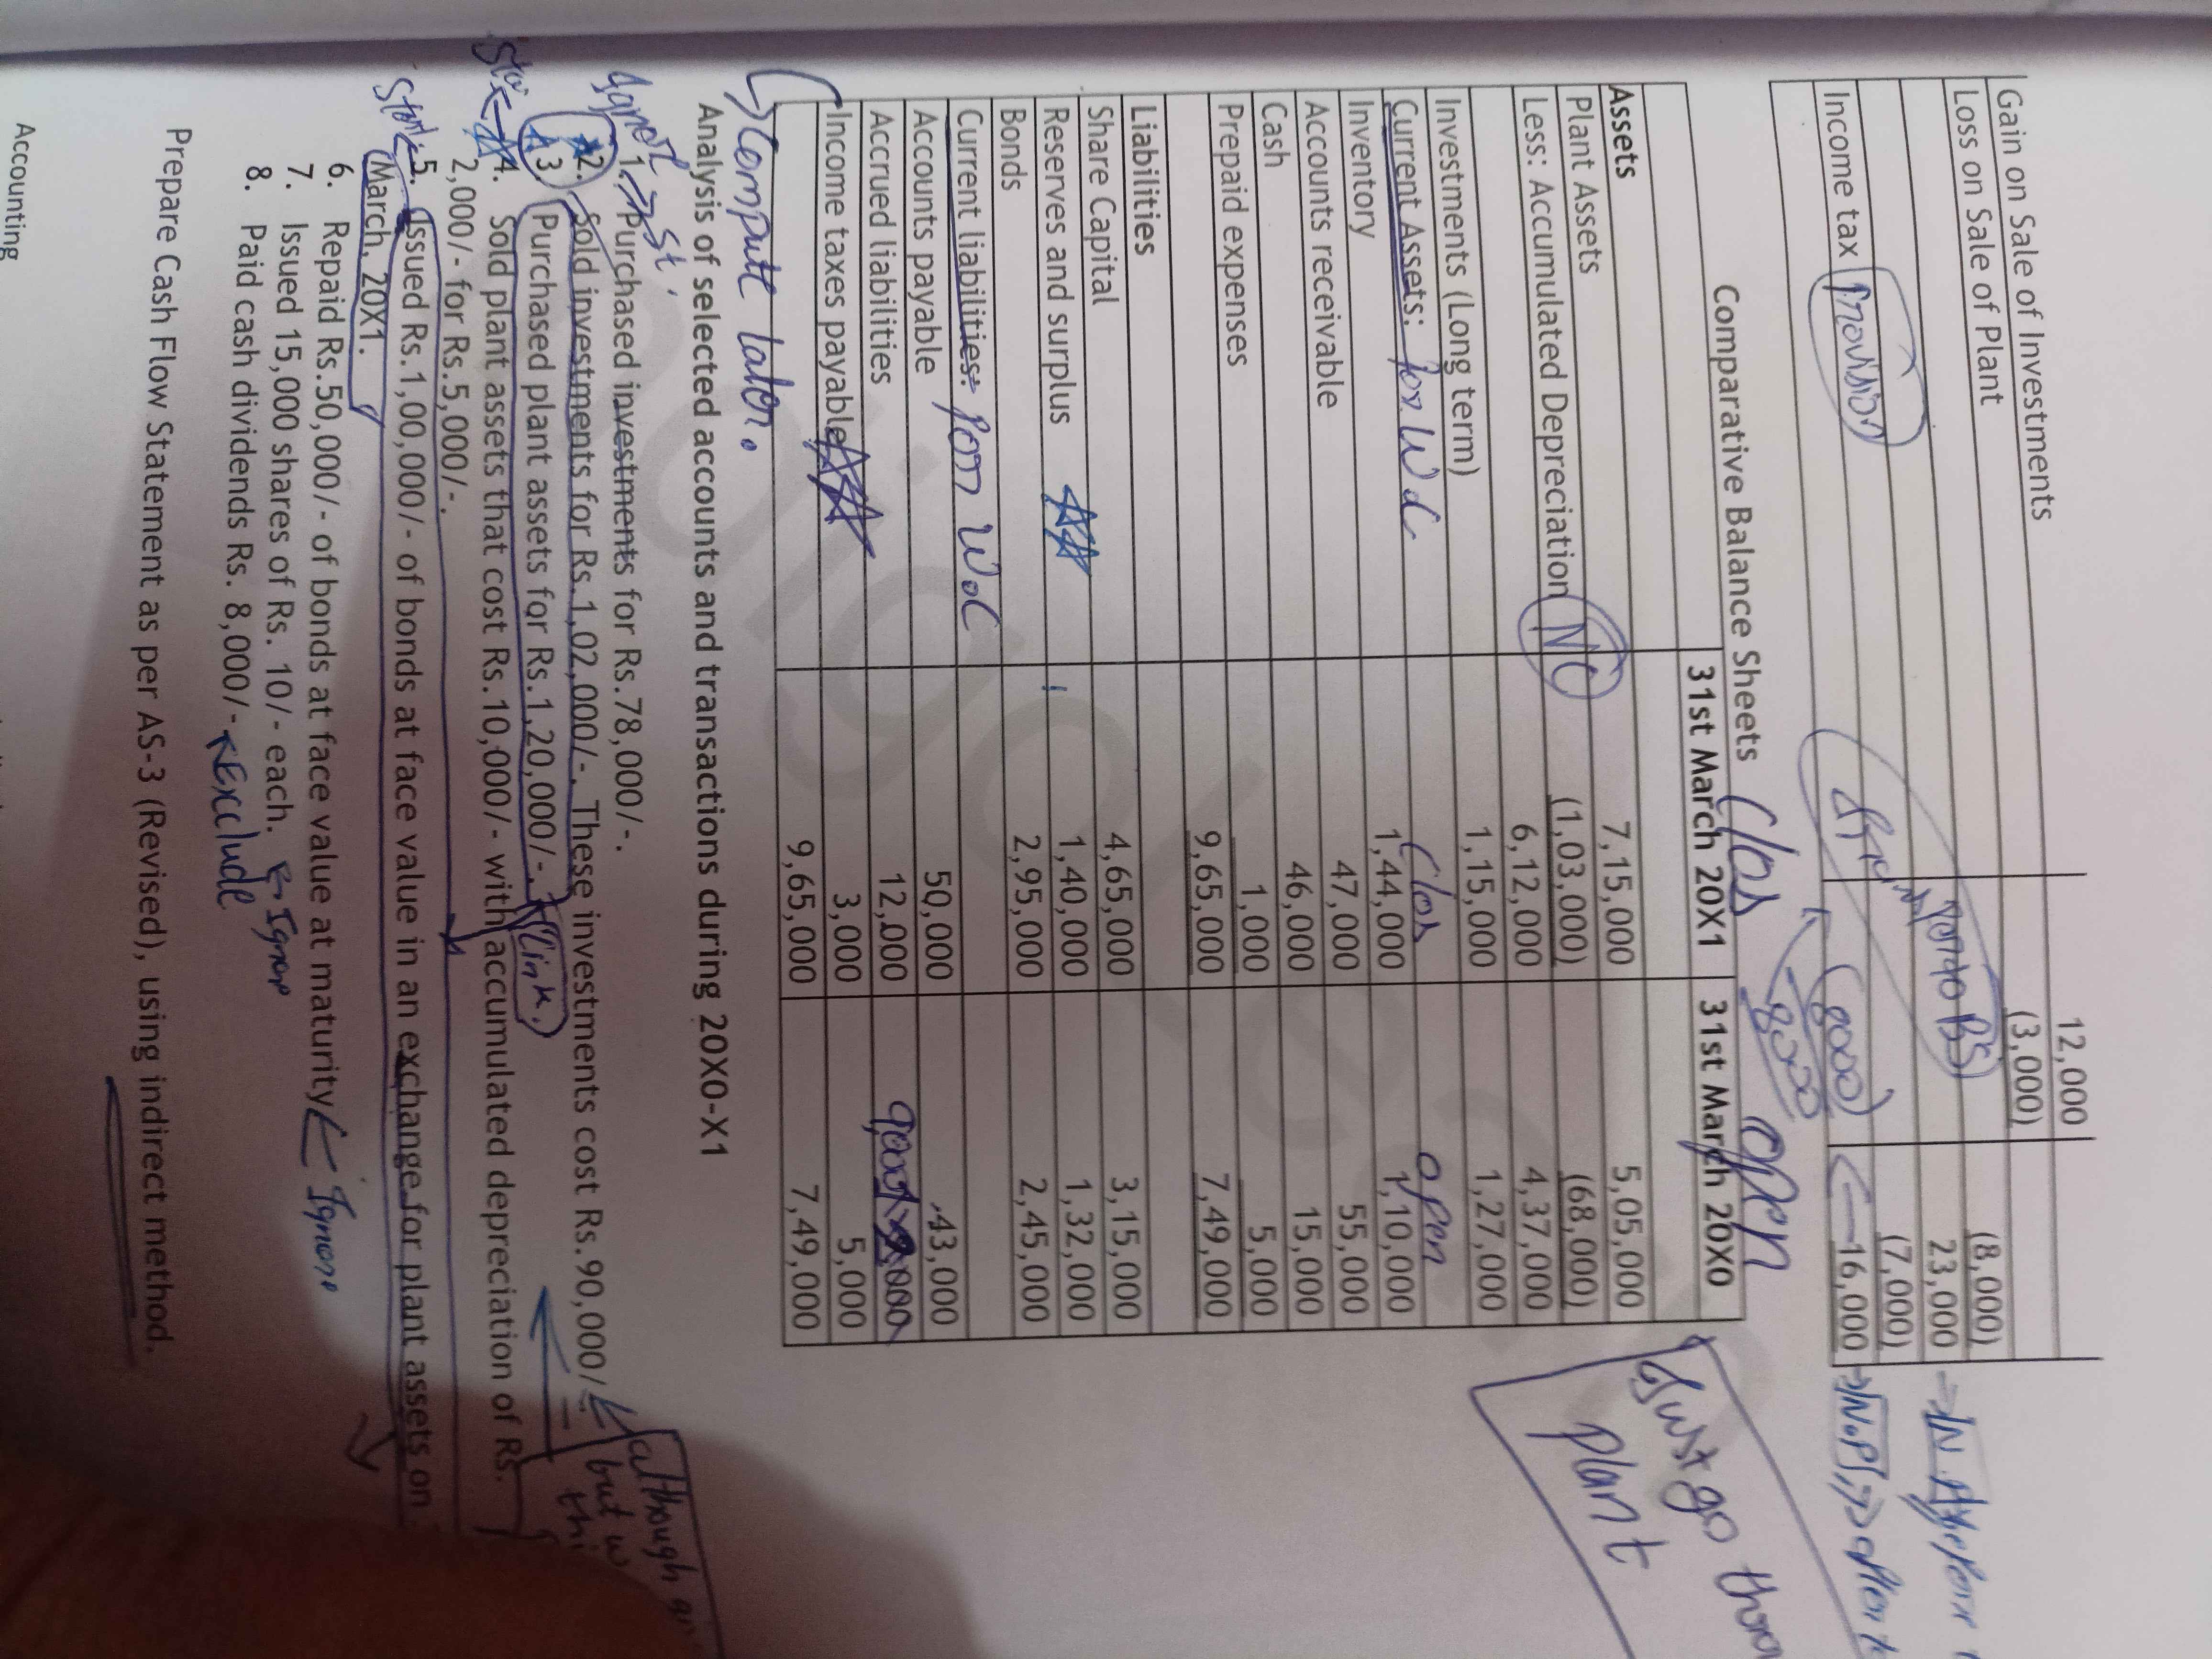 Gain on Sale of Investments 12,000
Loss on Sale of Plant (3,000)
(8,000)
23,000 → IN
(7,000)
Income tax provision (7000) ← 16,000 → N.P.
from
BS
Comparative Balance Sheets
Clos open
31st March 20X1 31st March 20X0
Assets
Plant Assets 7,15,000 5,05,000
Less: Accumulated Depreciation NC (1,03,000) (68,000)
6,12,000 4,37,000
Investments (Long term) 1,15,000 1,27,000
Current Assets: for W C Clos open
Inventory 1,44,000 1,10,000
Accounts receivable 47,000 55,000
Cash 46,000 15,000
Prepaid expenses 1,000 5,000
9,65,000 7,49,000
Just go
plant
Liabilities
Share Capital 4,65,000 3,15,000
Reserves and surplus 1,40,000 1,32,000
Bonds 2,95,000 2,45,000
Current liabilities: for W.C
Accounts payable 50,000 43,000
Accrued liabilities 12,000 9000
Income taxes payable 3,000 5,000
9,65,000 7,49,000
Compute later.
Analysis of selected accounts and transactions during 20X0-X1
1. Purchased investments for Rs.78,000/-.
2. Sold investments for Rs.1,02,000/-. These investments cost Rs.90,000/-
although
but w
thi
3. Purchased plant assets for Rs.1,20,000/-. Link.
4. Sold plant assets that cost Rs.10,000/- with accumulated depreciation of Rs.
2,000/- for Rs.5,000/-.
Start 5. Issued Rs.1,00,000/- of bonds at face value in an exchange for plant assets on
March, 20X1.
6. Repaid Rs.50,000/- of bonds at face value at maturity ← Ignore
7. Issued 15,000 shares of Rs. 10/- each. ← Ignore
8. Paid cash dividends Rs. 8,000/- ← Exclude
Prepare Cash Flow Statement as per AS-3 (Revised), using indirect method.
Accounting